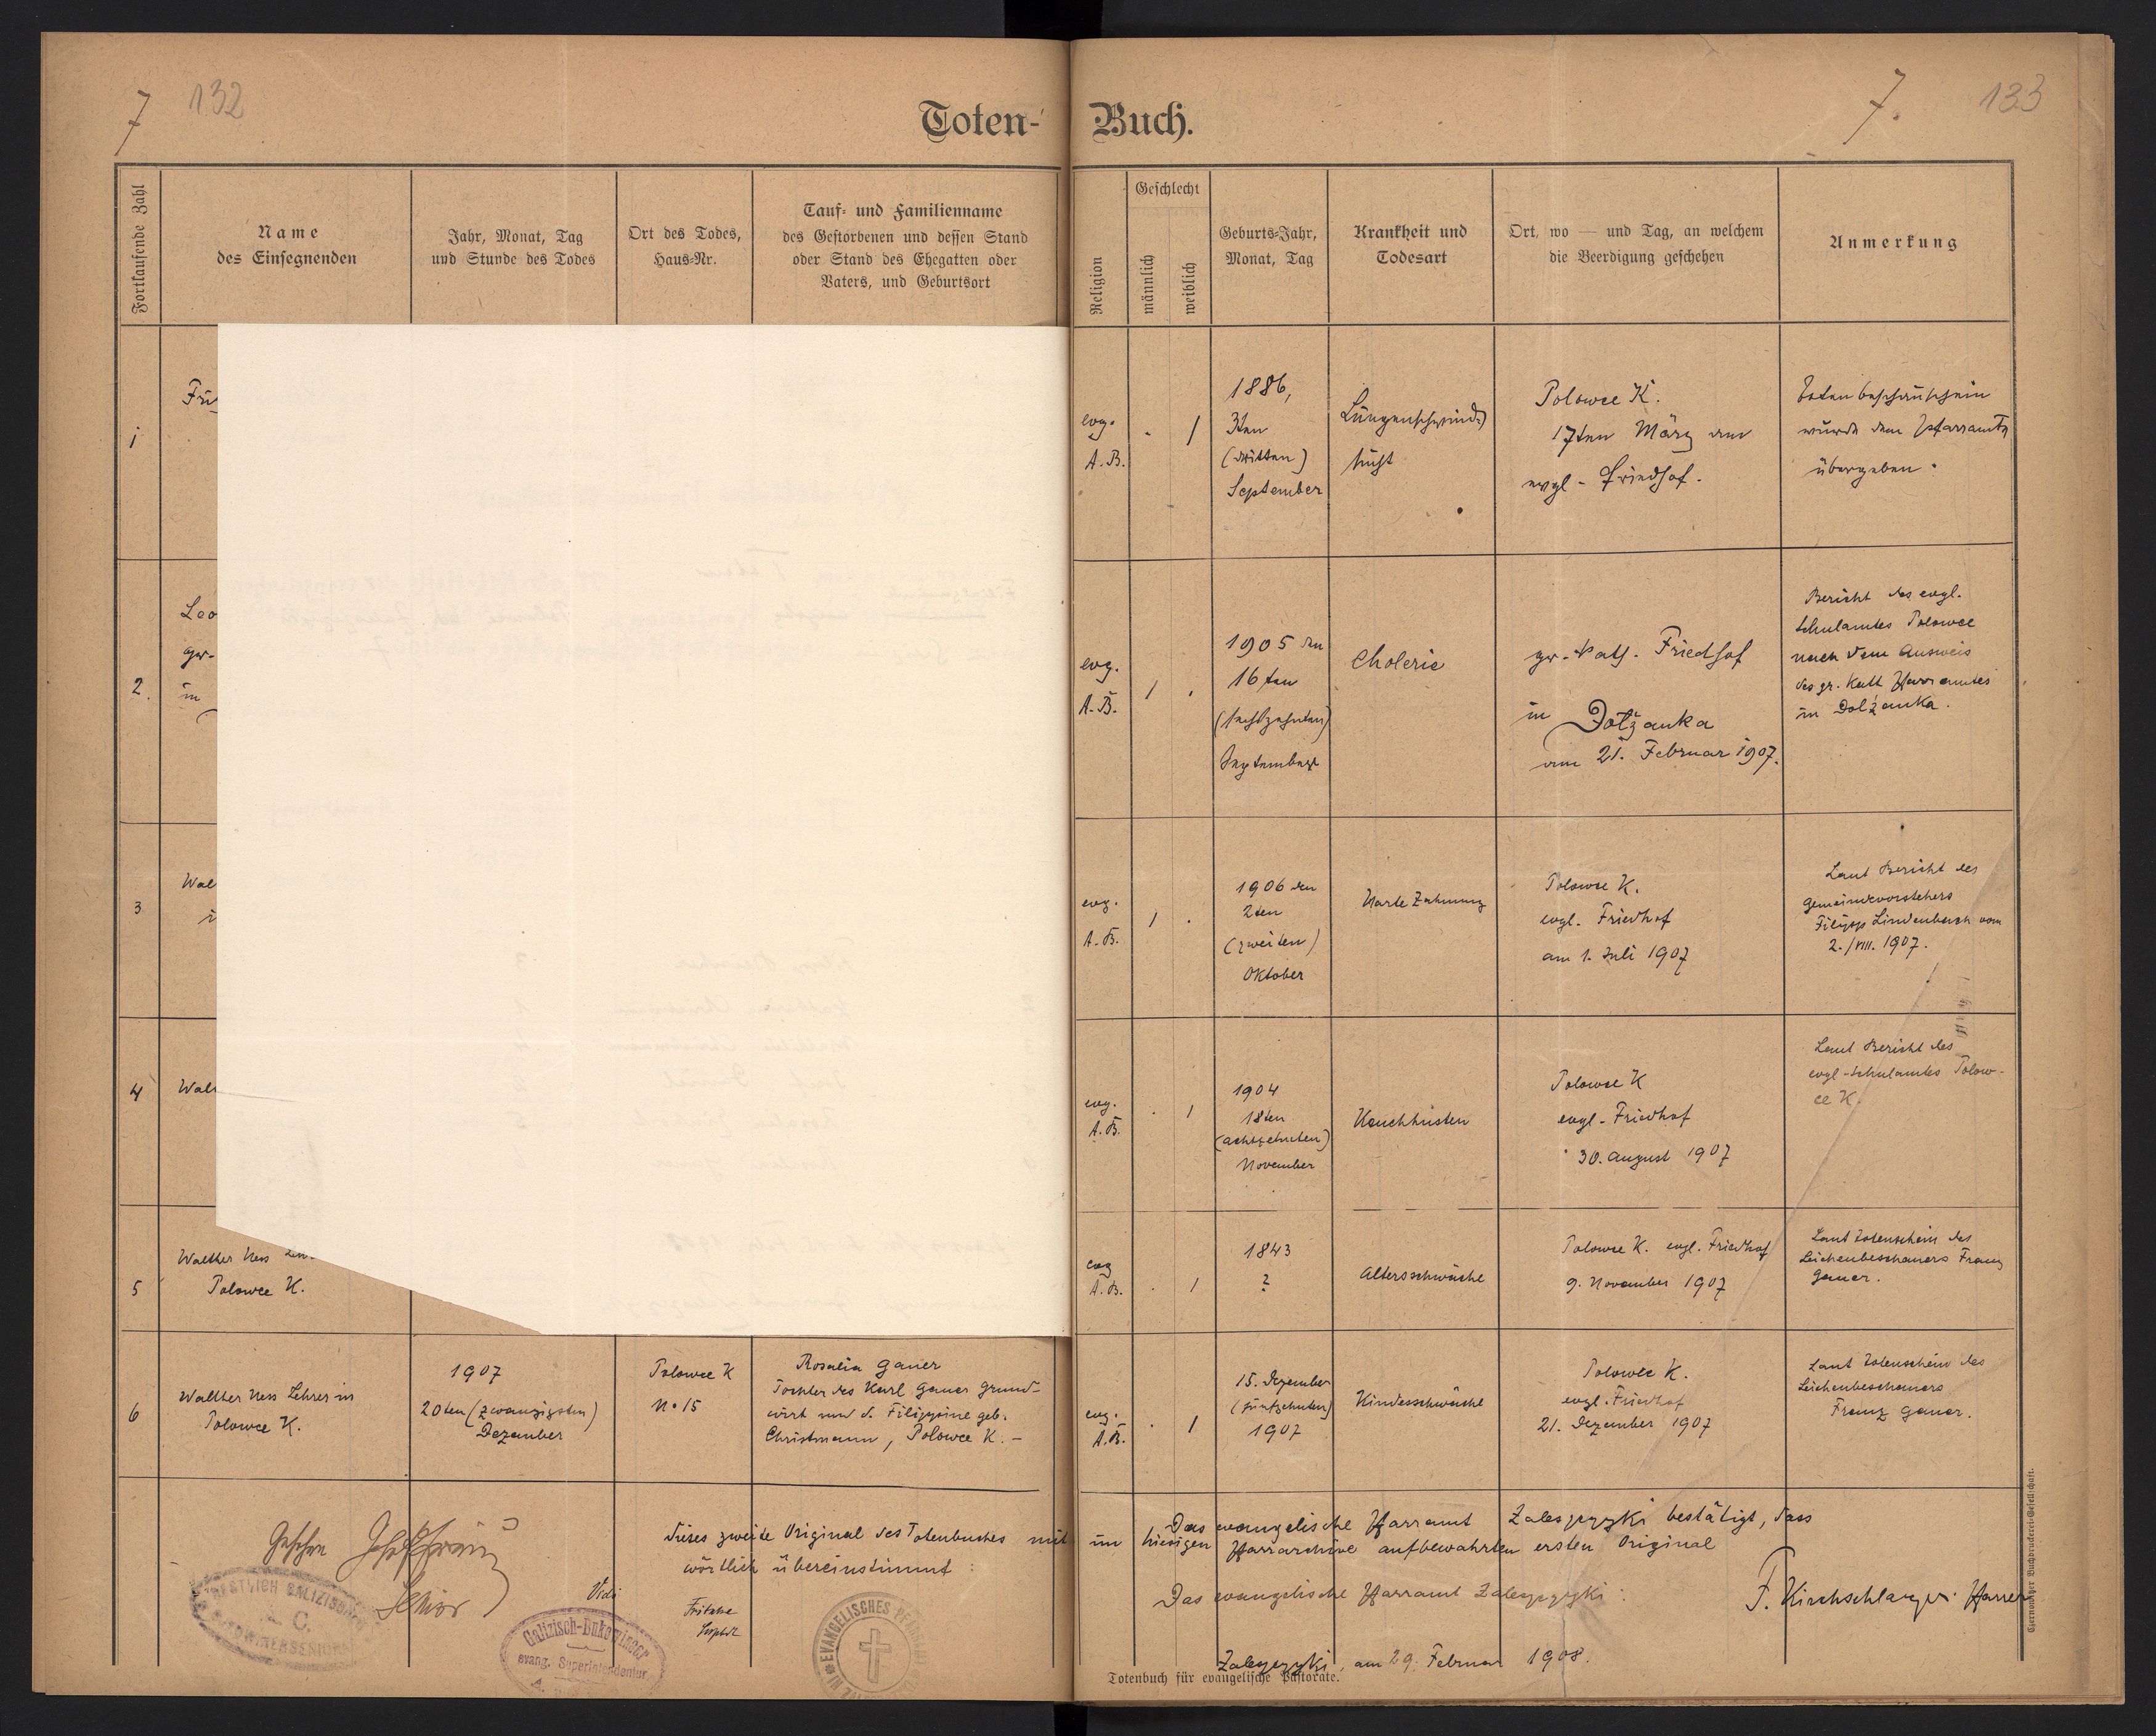 7 132
Toten-
Buch.
7. 133
Fortlaufende Zahl
Name
des Einsegnenden
Jahr, Monat, Tag
und Stunde des Todes
Ort des Todes,
Haus-Nr.
Tauf- und Familienname
des Gestorbenen und dessen Stand
oder Stand des Ehegatten oder
Vaters, und Geburtsort
Religion
Geschlecht
männlich
weiblich
Geburts-Jahr,
Monat, Tag
Krankheit und
Todesart
Ort, wo — und Tag, an welchem
die Beerdigung geschehen
Anmerkung
1
evg.
A. B.
. /
1886,
3ten
(dritten)
September
Lungenschwind-
sucht
Polowce K.
17ten März am
evgl - Friedhof.
Totenbeschauschein
wurde dem Pfarramte
übergeben.
2.
Leo
gr-
in
evg.
A. B.
/ .
1905 den
16ten
(sechszehnten)
September
Cholerie
gr.-kath. Friedhof
in Dołżanka
am 21. Februar 1907.
Bericht des evgl.
Schulamtes Polowce
nach dem Ausweis
des gr. Kath Pfarramtes
in Dołżanka.
3
Wal
evg.
A. B.
/ .
1906 den
2ten
(zweiten)
Oktober
Harte Zahnung
Polowce K.
evgl. Friedhof
am 1. Juli 1907
Laut Bericht des
Gemeindevorstehers
Filipp Lindenbach vom
2./VIII. 1907.
4
Wal
evg.
A. B.
. /
1904
18ten
(achtzehnten)
November
Keuchhusten
Polowce K
evgl - Friedhof
30. August 1907
Laut Bericht des
evgl - Schulamtes Polow-
ce K.
5
Walther Hess
Polowce K.
evg
A. B.
. /
1843
?
Altersschwäche
Polowce K. evgl. Friedhof
9. November 1907
Laut Totenschein des
Leichenbeschauers Franz
Gauer.
6
Walther Hess Lehrer in
Polowce K.
1907
20ten (zwanzigsten)
Dezember
Polowce K
No 15
Rosalia Gauer
Tochter des Karl Gauer Grund-
wirt und d. Filippine geb.
Christmann, Polowce K. -
evg.
A. B.
. /
15. Dezember
(fünfzehnten)
1907
Kindesschwäche
Polowce K.
evgl. Friedhof
21. Dezember 1907
Laut Totenschein des
Leichenbeschauers
Franz Gauer.
Das evangelische Pfarramt Zaleszczyki bestätigt, dass
dieses zweite Original des Totenbuches mit im hiesigen Pfarrarchive aufbewahrten ersten Original
wörtlich übereinstimmt:
Das evangelische Pfarramt Zaleszczyki:
F. Kirchschlager Pfarrer
Zaleszczyki, am 29. Februar 1908.
Gesehen
Senior
Vidi
Fritsche
Galizisch-Bukowinaer
evang. Superintendentur
EVANGELISCHES
Totenbuch für evangelische Pastorate.
Czernowitzer Buchdruckerei-Gesellschaft.